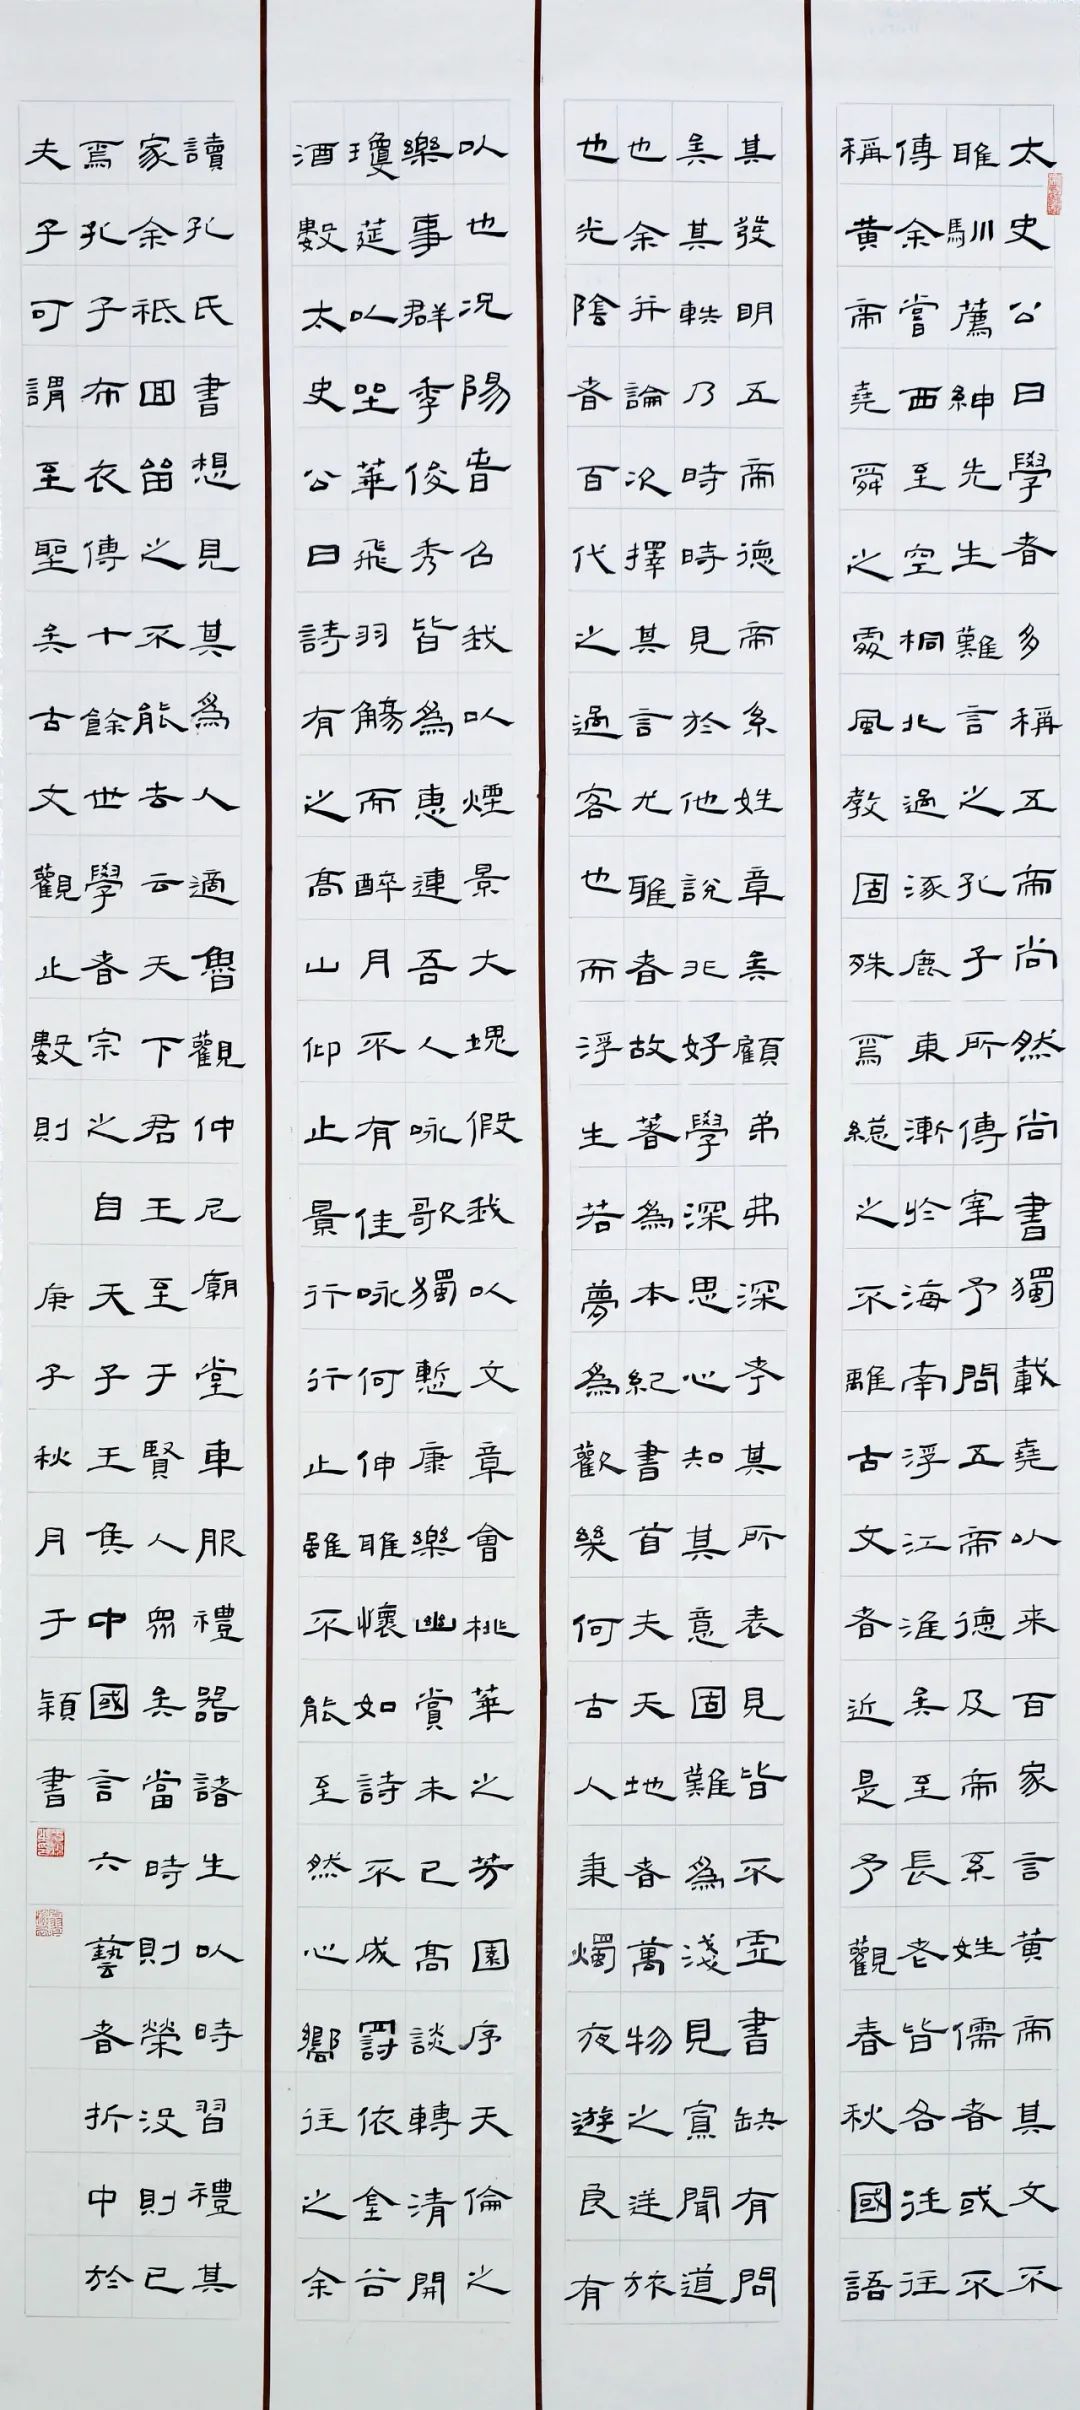 太史公曰學者多稱五帝尚然尚書獨載堯以来百家言黄帝其文不
雅馴薦紳先生難言之孔子所傳宰予問五帝德及帝系姓儒者或不
傳余嘗西至空桐北過涿鹿東漸於海南浮江淮矣至長老皆各往往
稱黄帝堯舜之處風教固殊焉總之不離古文者近是予觀春秋國語
其發明五帝德帝系姓章矣顧弟弗深考其所表見皆不虛書缺有問
矣其軼乃時時見於他說非好學深思心知其意固難為淺見寡聞道
也余并論次擇其言尤雅者故著為本紀書首夫天地者萬物之逆旅
也光陰者百代之過客也而浮生若夢為歡幾何古人秉燭夜遊良有
以也況陽春召我以煙景大塊假我以文章會桃華之芳園序天倫之
樂事群季俊秀皆為惠連吾人咏歌獨慙康樂幽賞未已高談轉清開
瓊筵以坐華飛羽觴而醉月不有佳咏何伸雅懷如詩不成罰依金谷
酒數太史公曰詩有之高山仰止景行行止雖不能至然心嚮往之余
讀孔氏書想見其為人適魯觀仲尼廟堂車服禮器諸生以時習禮其
家余祗回留之不能去云天下君王至于賢人眾矣當時則榮没則已
焉孔子布衣傳十餘世學者宗之自天子王侯中國言六藝者折中於
夫子可謂至聖矣古文觀止數則 庚子秋月于穎書